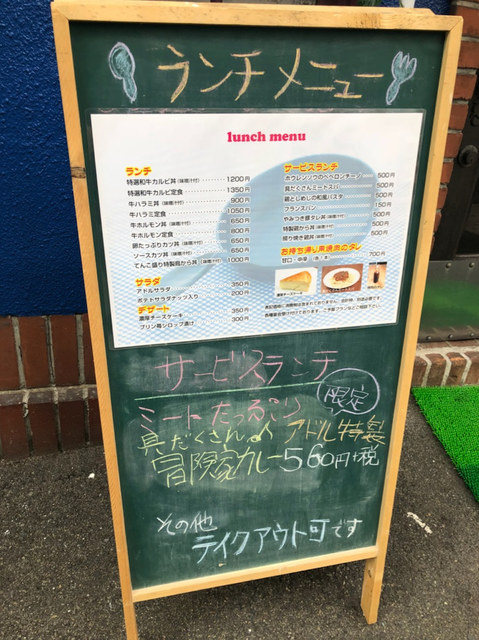 ランチメニュー
lunch menu
ランチ
特選和牛カルビ丼(味噌汁付) 1200円
特選和牛カルビ定食 1350円
牛ハラミ丼(味噌汁付) 900円
牛ハラミ定食 1050円
牛ホルモン丼(味噌汁付) 650円
牛ホルモン定食 800円
卵たっぷりカツ丼(味噌汁付) 650円
ソースカツ丼(味噌汁付) 650円
てんこ盛り特製鶏から丼(味噌汁付) 1000円
サラダ
アドルサラダ 350円
ポテトサラダナッツ入り 200円
デザート
濃厚チーズケーキ 350円
プリン梅シロップ漬け 300円
サービスランチ
ホウレンソウのペペロンチーノ 500円
具だくさんミートスパ 500円
鶏としめじの和風パスタ 500円
フランスパン 150円
やみつき豚タレ丼(味噌汁付) 500円
特製鶏から丼(味噌汁付) 500円
照り焼き鶏丼(味噌汁付) 500円
お持ち帰り用焼肉のタレ
甘口 中辛 700円
サービスランチ
限定
ミートたっぷり
具だくさん♪ アドル特製
冒険家カレー560円+税
その他
テイクアウト可です